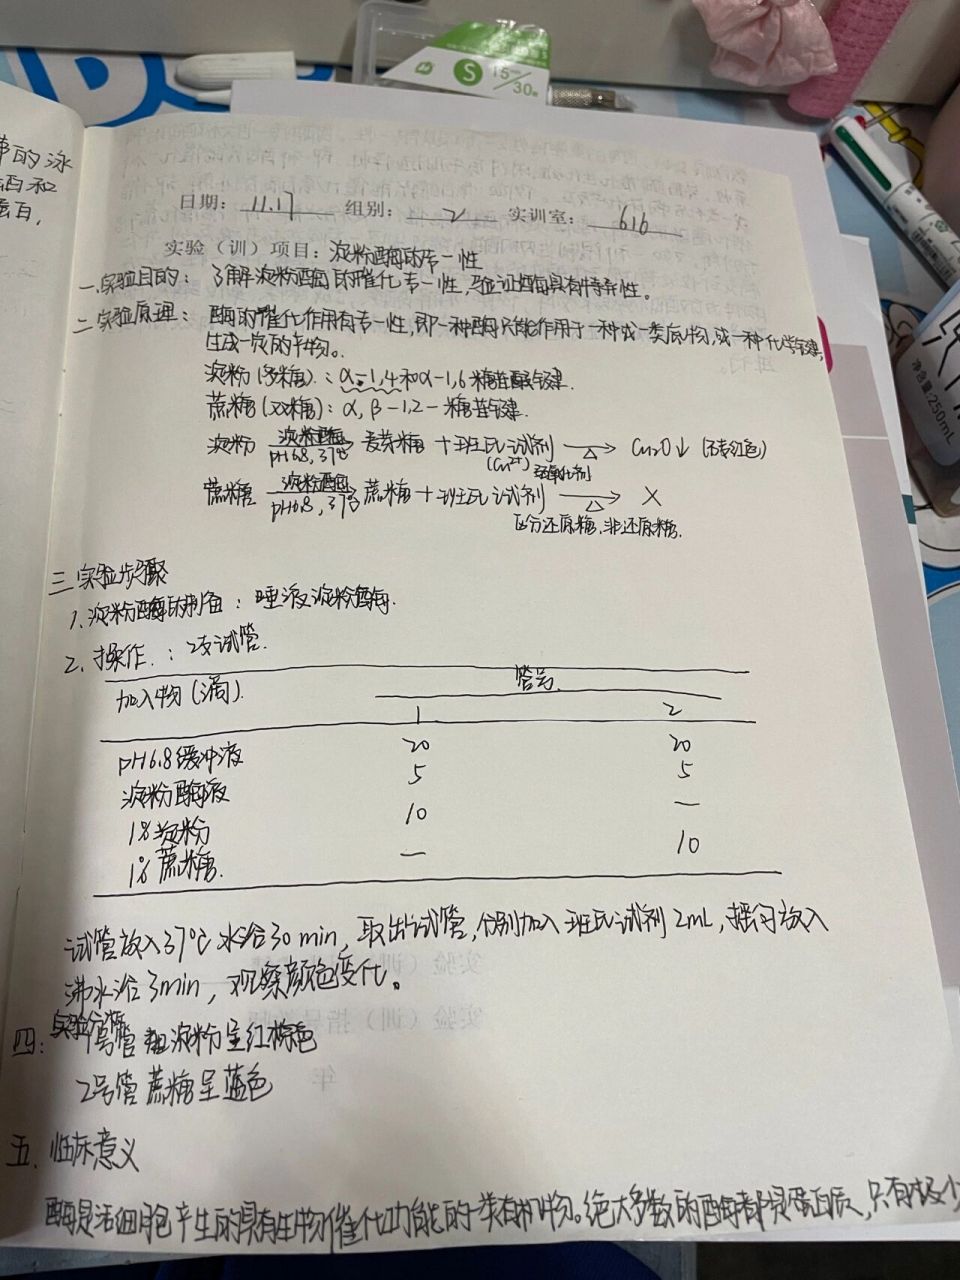 事的泳
酒和
蛋白,
S 15mm/30卷
净含量:250mL
日期: 11.17 组别: 2 实训室: 616
实验(训)项目: 淀粉酶的专一性
一.实验目的: 了解淀粉酶的催化专一性,验证酶具有特异性。
二.实验原理: 酶的催化作用有专一性,即一种酶只能作用于一种或一类底物,或一种化学键,
生成一定的产物。
淀粉(多糖):α-1,4和α-1,6糖苷键.
蔗糖(双糖):α,β-1,2-糖苷键.
淀粉 淀粉酶 pH6.8,37℃ 麦芽糖+班氏试剂 △ → Cu2O↓(砖红色)
(Cu²⁺) 弱氧化剂
蔗糖 淀粉酶 pH6.8,37℃ 蔗糖+班氏试剂 △ → ×
区分还原糖,非还原糖.
三.实验步骤
1.淀粉酶的制备:唾液淀粉酶.
2.操作.:2支试管.
加入物(滴). 管号.
1 2
pH6.8缓冲液 20 20
淀粉酶液 5 5
1%淀粉 10 —
1%蔗糖. — 10
试管放入37℃水浴30min,取出试管,分别加入班氏试剂2mL,摇匀放入
沸水浴3min,观察颜色变化。
四:实验分析 1号管 淀粉呈红棕色
2号管 蔗糖呈蓝色
五.临床意义
酶是活细胞产生的具有生物催化功能的一类有机物。绝大多数的酶都是蛋白质,只有极少